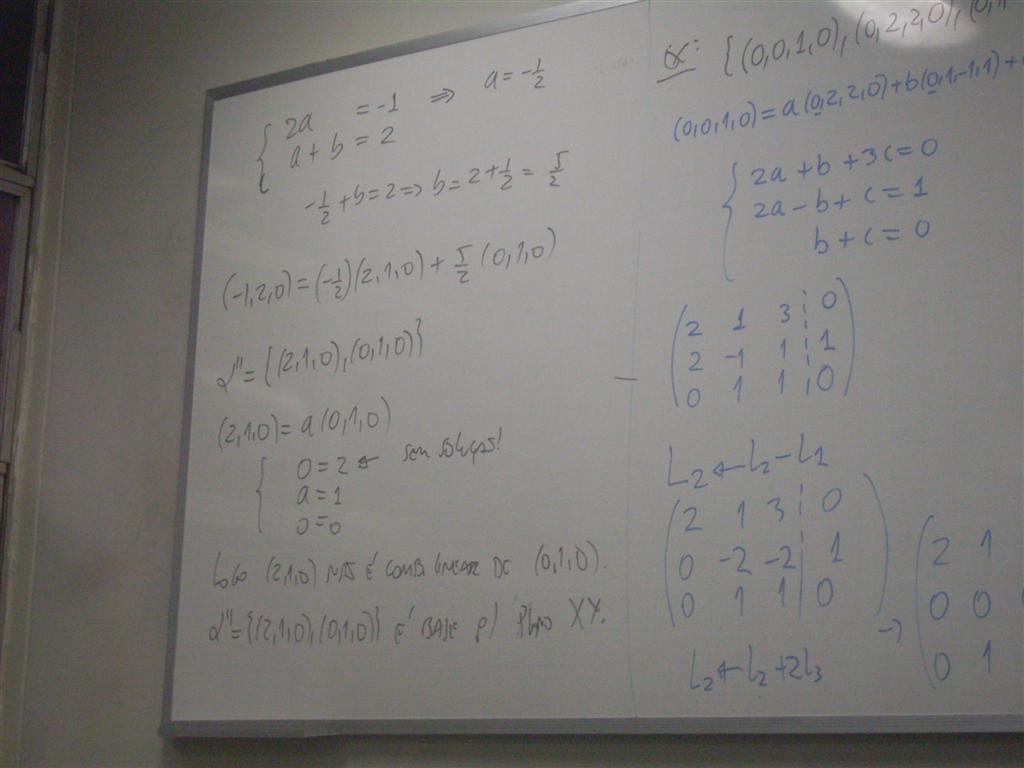 2a = -1 ⇒ a = -1/2
a + b = 2
-1/2 + b = 2 ⇒ b = 2 + 1/2 = 5/2
(-1,2,0) = (-1/2)(2,1,0) + 5/2 (0,1,0)
α'' = {(2,1,0),(0,1,0)}
(2,1,0) = a(0,1,0)
0 = 2 ← sem solução!
a = 1
0 = 0
Logo (2,1,0) não é comb. linear de (0,1,0).
α'' = {(2,1,0),(0,1,0)} é base p/ plano XY.
α: {(0,0,1,0),(0,2,2,0),(0,
(0,0,1,0) = a(0,2,2,0) + b(0,1,-1,1) +
2a + b + 3c = 0
2a - b + c = 1
b + c = 0
2 1 3 0
2 -1 1 1
0 1 1 0
L2 ← L2 - L1
2 1 3 0
0 -2 -2 1
0 1 1 0
→
2 1
0 0
0 1
L2 ← L2 + 2L3